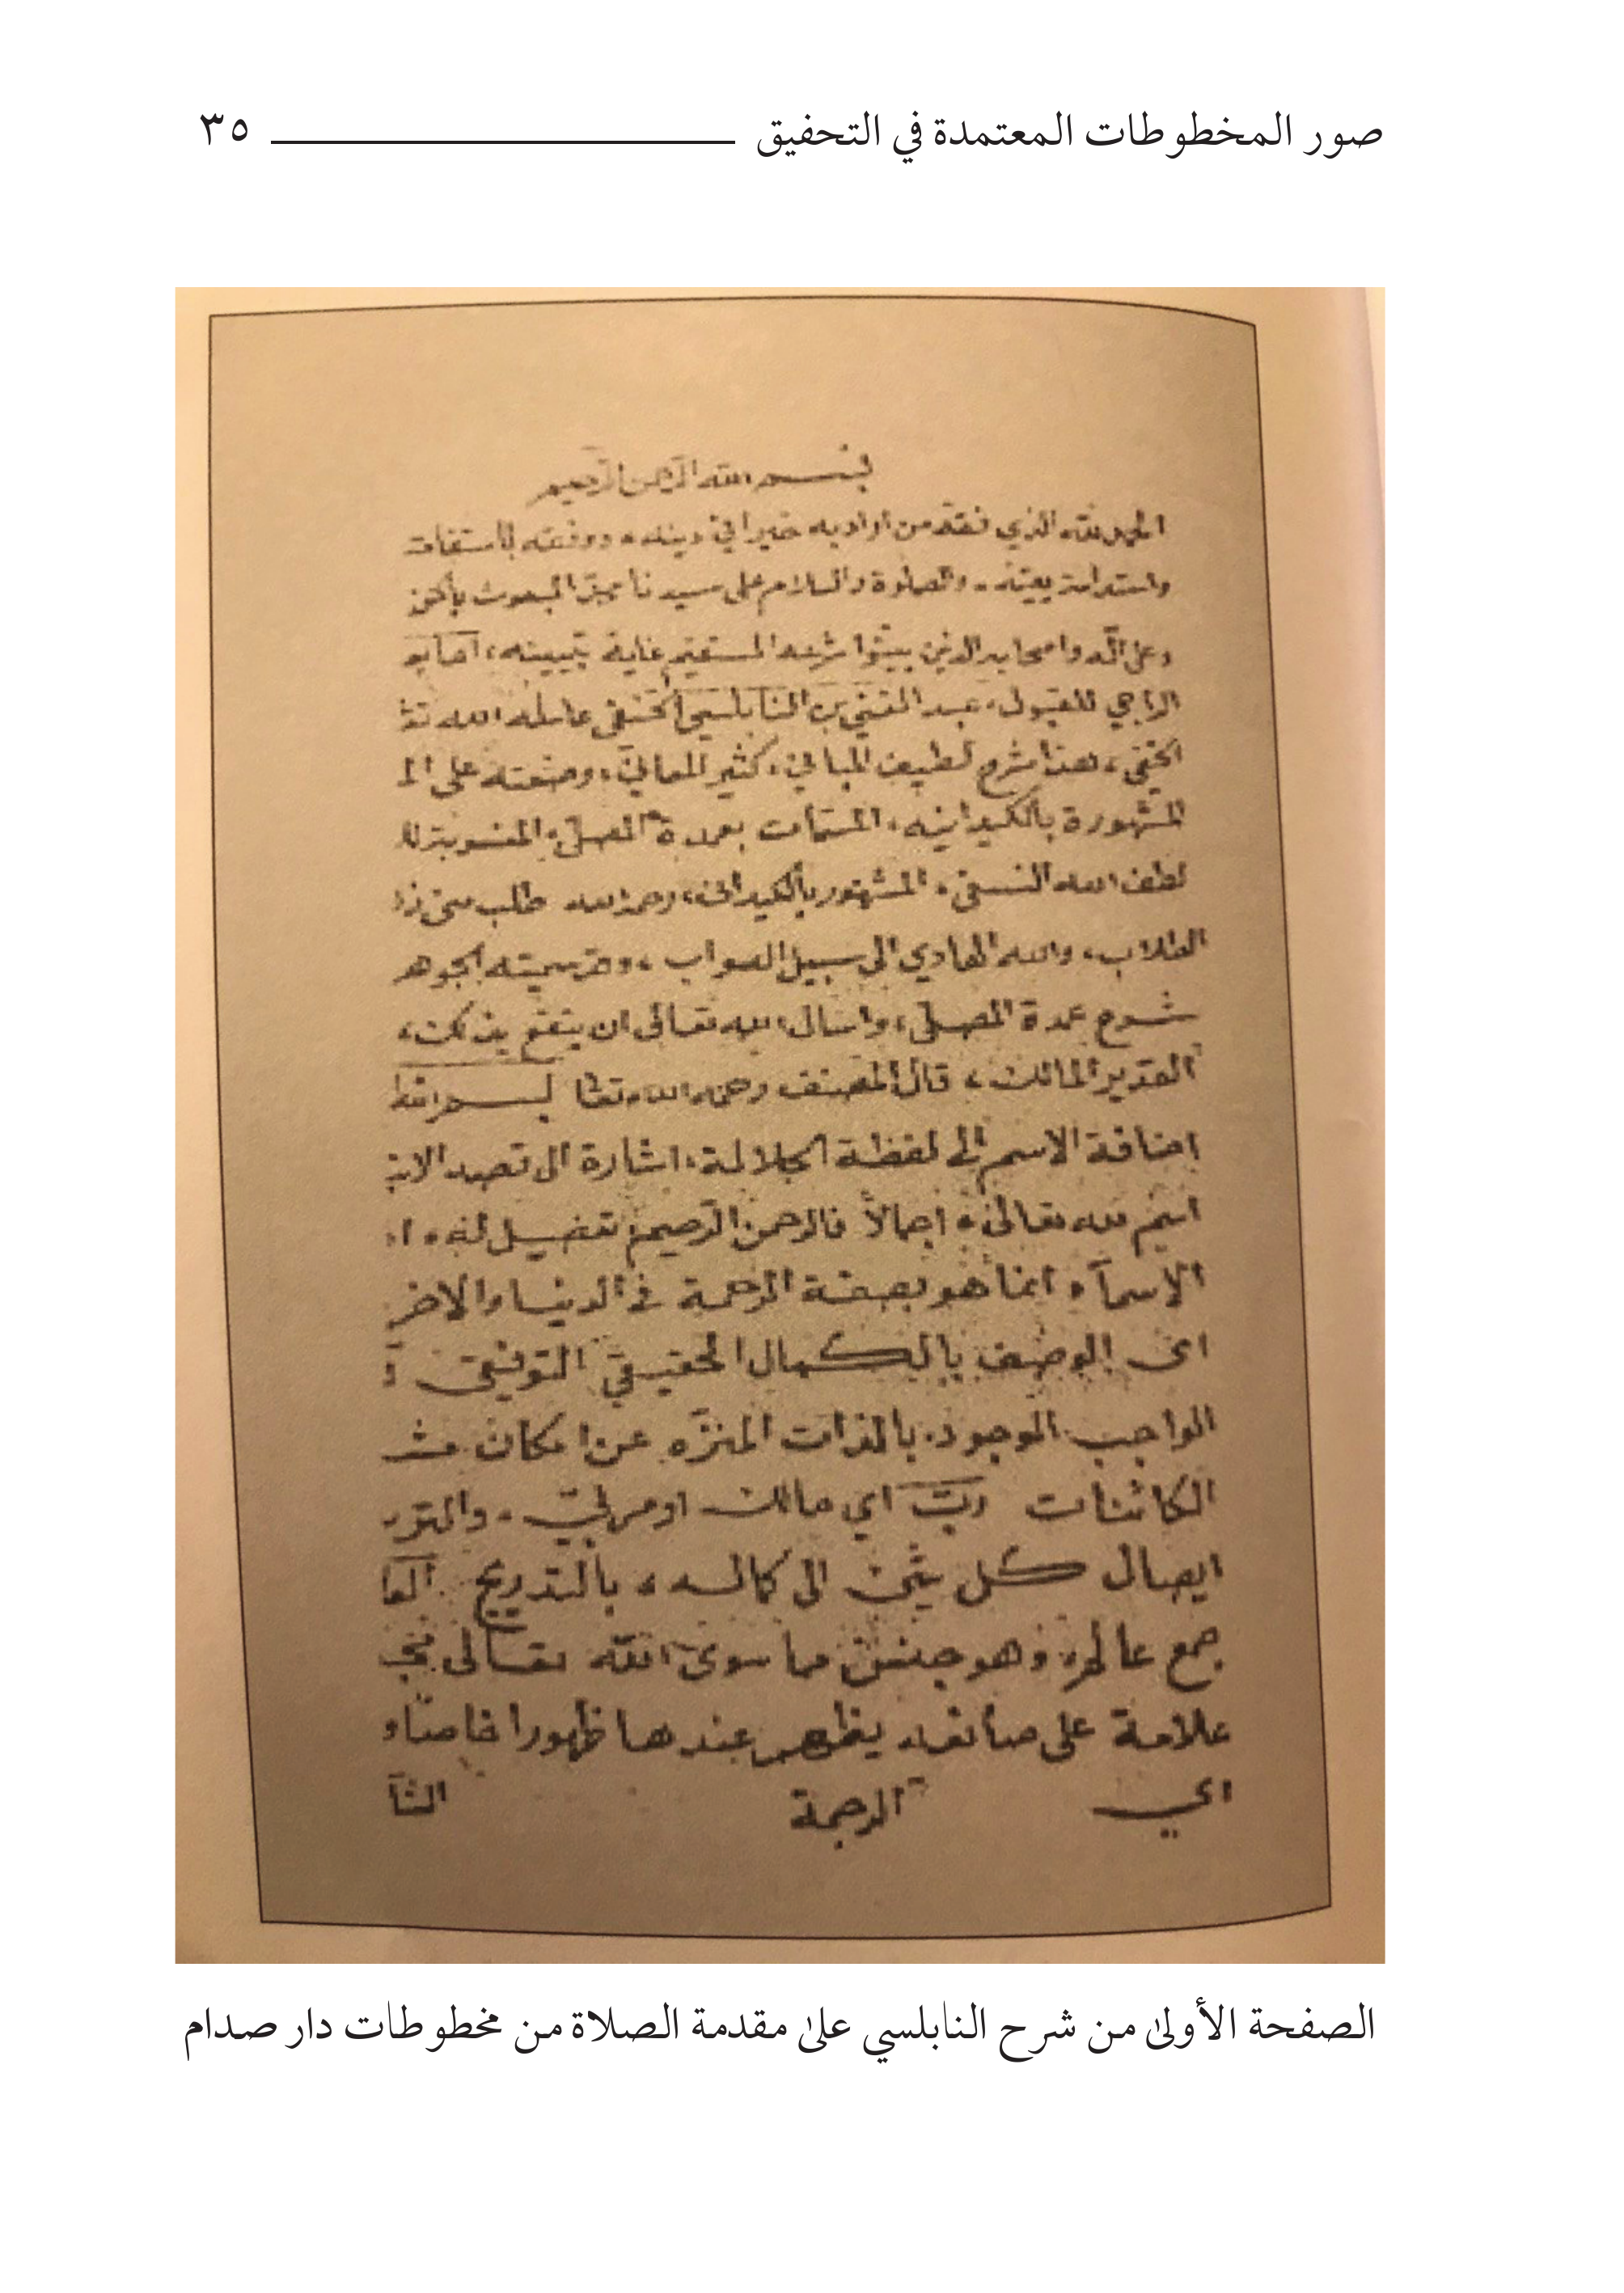 صور المخطوطات المعتمدة في التحقيق ٣٥
بسم الله الرحمن الرحيم
الحمد لله الذي فقه من اراد به خيرا في دينه، ووفقه
واستدامة يقينه، والصلوة والسلام على سيدنا محمد المبعوث بالحق
وعلى آله واصحابه الذين بينوا شرعه المستقيم غاية تبيينه،
الراجي للقبول، عبد الغني بن النابلسي الحنفي عامله الله
الخفي، هذا شرح لطيف المباني، كثير المعاني، وضعته على
المشهورة بالكيدانيه، المسمات بعمدة المصلي، المنسوبة
لطف الله النسفي، المشهور بالكيداني، رحمه الله طلب مني
الطلاب، والله الهادي الى سبيل الصواب، وقد سميته الجوهر
شرح عمدة المصلي، واسال الله تعالى ان ينفع بذلك،
القدير المالك، قال المصنف رحمه الله تعا بسم الله
اضافة الاسم الى لفظة الجلالة، اشارة الى قصد
اسم لله تعالى، اجمالاً فالرحمن الرحيم تفضيل له،
الاسماء انما هو بصفة الرحمة في الدنيا والاخر
اي الوصف بالكمال الحقيقي التوفيقي
الواجب الموجود بالذات المنزه عن امكان
الكائنات ربّ اي مالك او مربي، والتر
ايصال كل شئ الى كماله، بالتدريج العا
جمع عالم، وهو جنس مما سوى الله تعالى
علامة على صانعه يظهر عندها ظهورا خاصا و
اي الرحمة
الصفحة الأولى من شرح النابلسي على مقدمة الصلاة من مخطوطات دار صدام